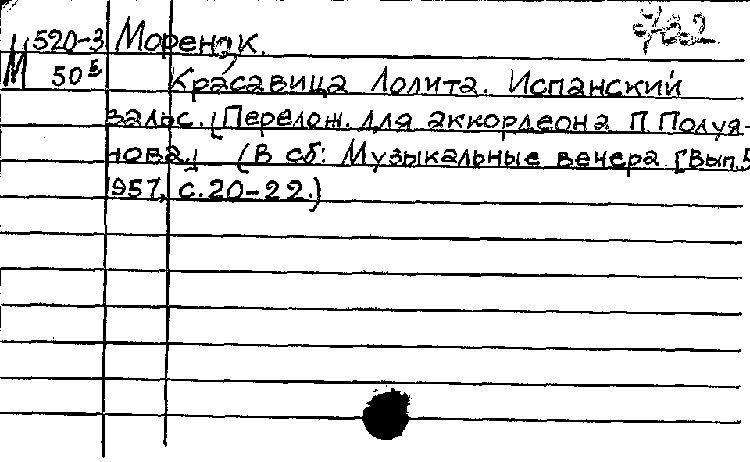 М 520-3 Моренак.
50⁵ Красавица Лолита. Испанский
вальс. [Перелож. для аккордеона П. Полуя-
нова.] (В сб: Музыкальные вечера [Вып.5
1957, с.20-22.)